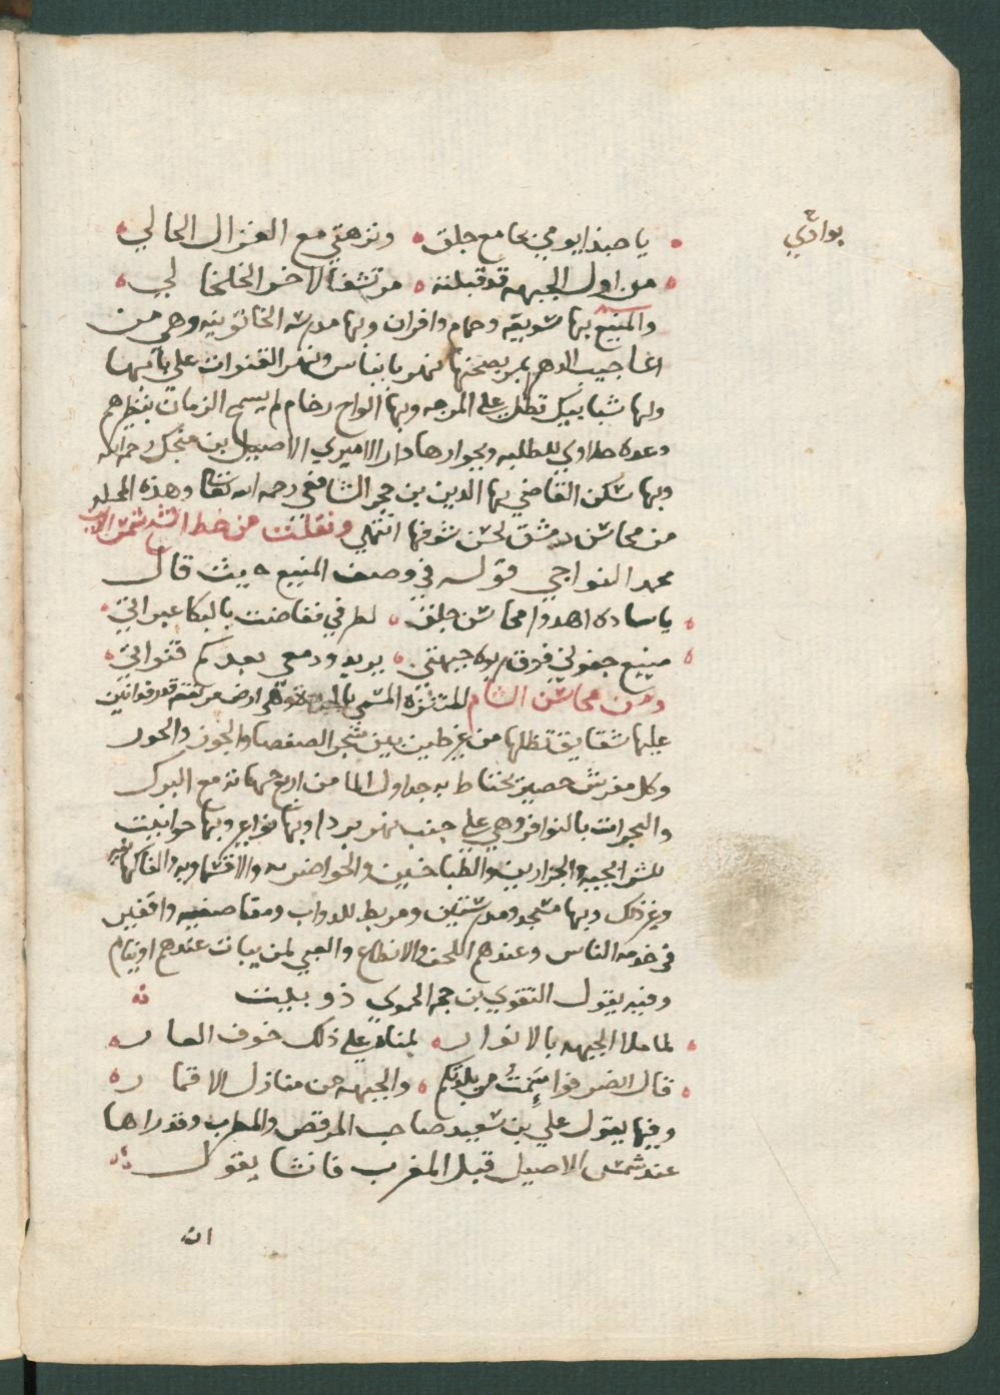 بوادي
يا حبذا يومي بجامع جلق ونزهتي مع الغزال الحالي
من اول الجبهه قد قبلته مرتشفا لاخر الخلخالي
والمنيبع بها سويقه وحمام وافران وبها مدرسه الخاتونيه وهي من
اعاجيب الدهر يمر بصحنها نهر بانياس ونهر القنوات على بابها
ولها شبابيك تطل على المرجه وبها الواح رخام لم يسمح الزمان بنظيرهم
وعده خلاوي للطلبه وبجوارها دار الاميري الاصيل بن منجك رحمه الله
وبها سكن القاضي بها الدين بن حجر الشافعي رحمه الله تعالى وهذه المحله
من محاسن دمشق لحسن سوقها انتهى ونقلت من خط الشيخ شمس الدين
محمد النواجي قوله في وصف المنيبع حيث قال
يا ساده اهدوا محاسن جلق لطرفي ففاضت بالبكا عبراتي
منيبع جفوني فوق ربوه جبهتي يزيد ودمعي بعدكم قنواتي
ومن محاسن الشام المتنزه المسمى بالجبهه وهي ارض مربعه قدر فدانين
عليها سقايف تظلها من غير طين بين شجر الصفصاف والجوز والحور
وكل مفرش حصير يحتاط به جداول الما من اربع جهاته مع البرك
والبحرات بالنوافر وهي على جنب نهر بردا وبها نواعير وبها حوانيت
للشرايحيه والجزارين والطباخين والحواضريه والاقسماويه والفاكهانيه
وغير ذلك وبها مسجد ومدرستين ومربط للدواب ومقاصفيه واقفين
في خدمه الناس وعندهم اللحف والانطاع والعبي لمن يبات عندهم او ينام
وفيه يقول التقوي بن حجه الحموي ذو بيت
لما ملا الجبهه بالانوار لمناه على ذلك خوف العار
قال انصرفوا سئمت من بلدتكم والجبهه من منازل الاقمار
وفيها يقول علي بن سعيد صاحب المرقص والمطرب وقد راها
عند شمس الاصيل قبل المغرب فانشا يقول
ان